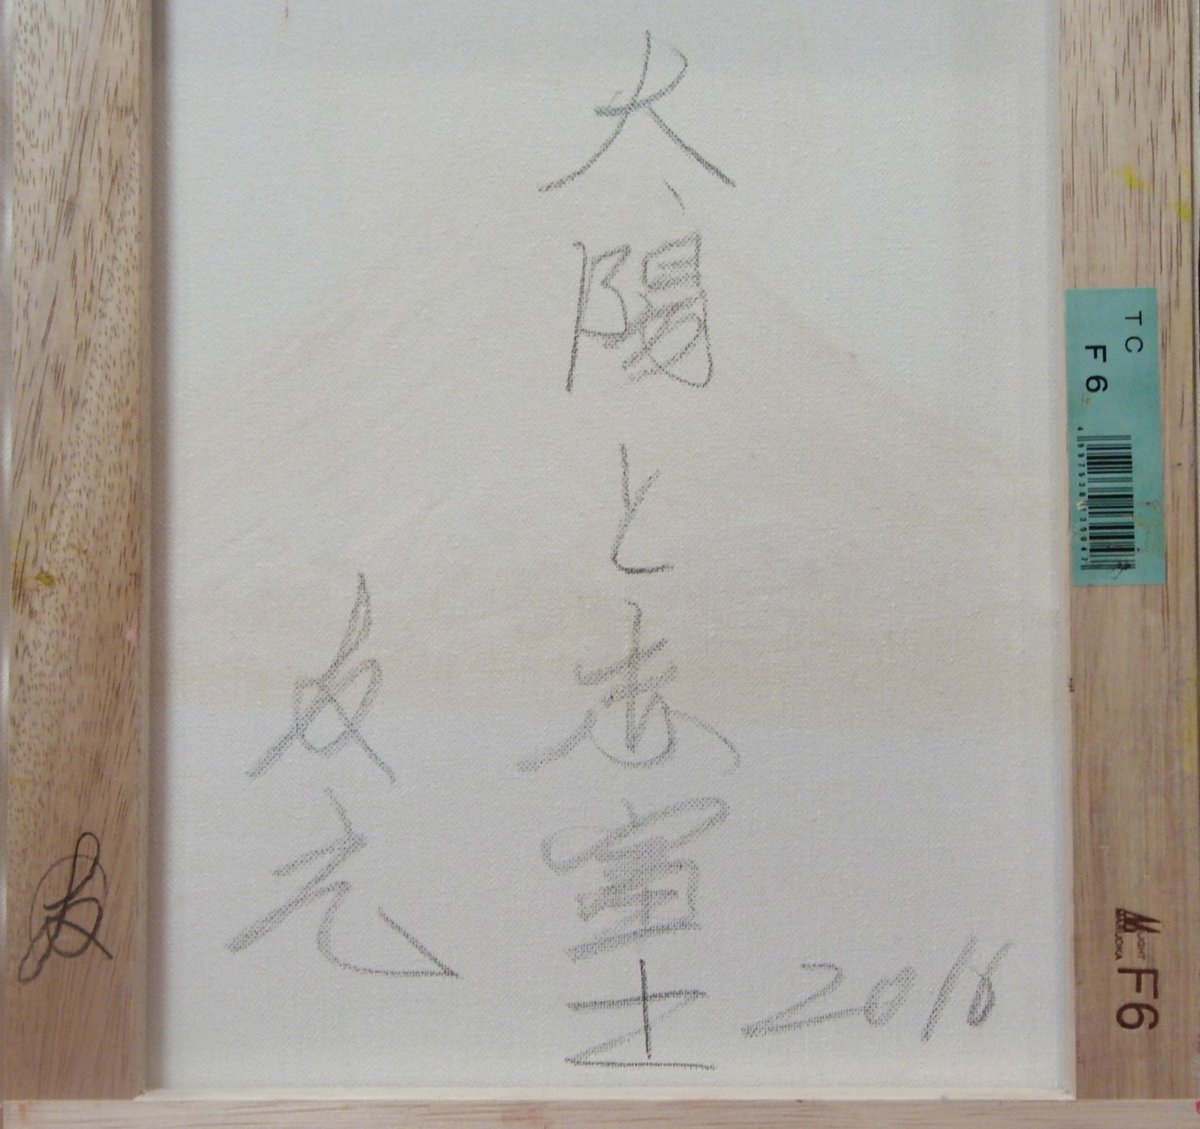 太陽
と
赤富士
2018
TC
F6
F6